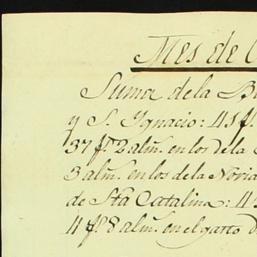 Mes de
Suma de la
y S. Ygnacio: 41 f.
37 f.s 2 alm.s en los de la
3 alm.s en los de la Noria
de Sta Catalina: 4
11 f.s 8 alm.s en el garto